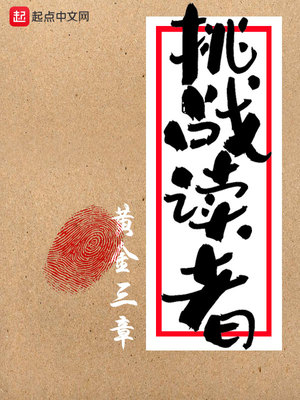 起 起点中文网
挑战读者
黄金三章